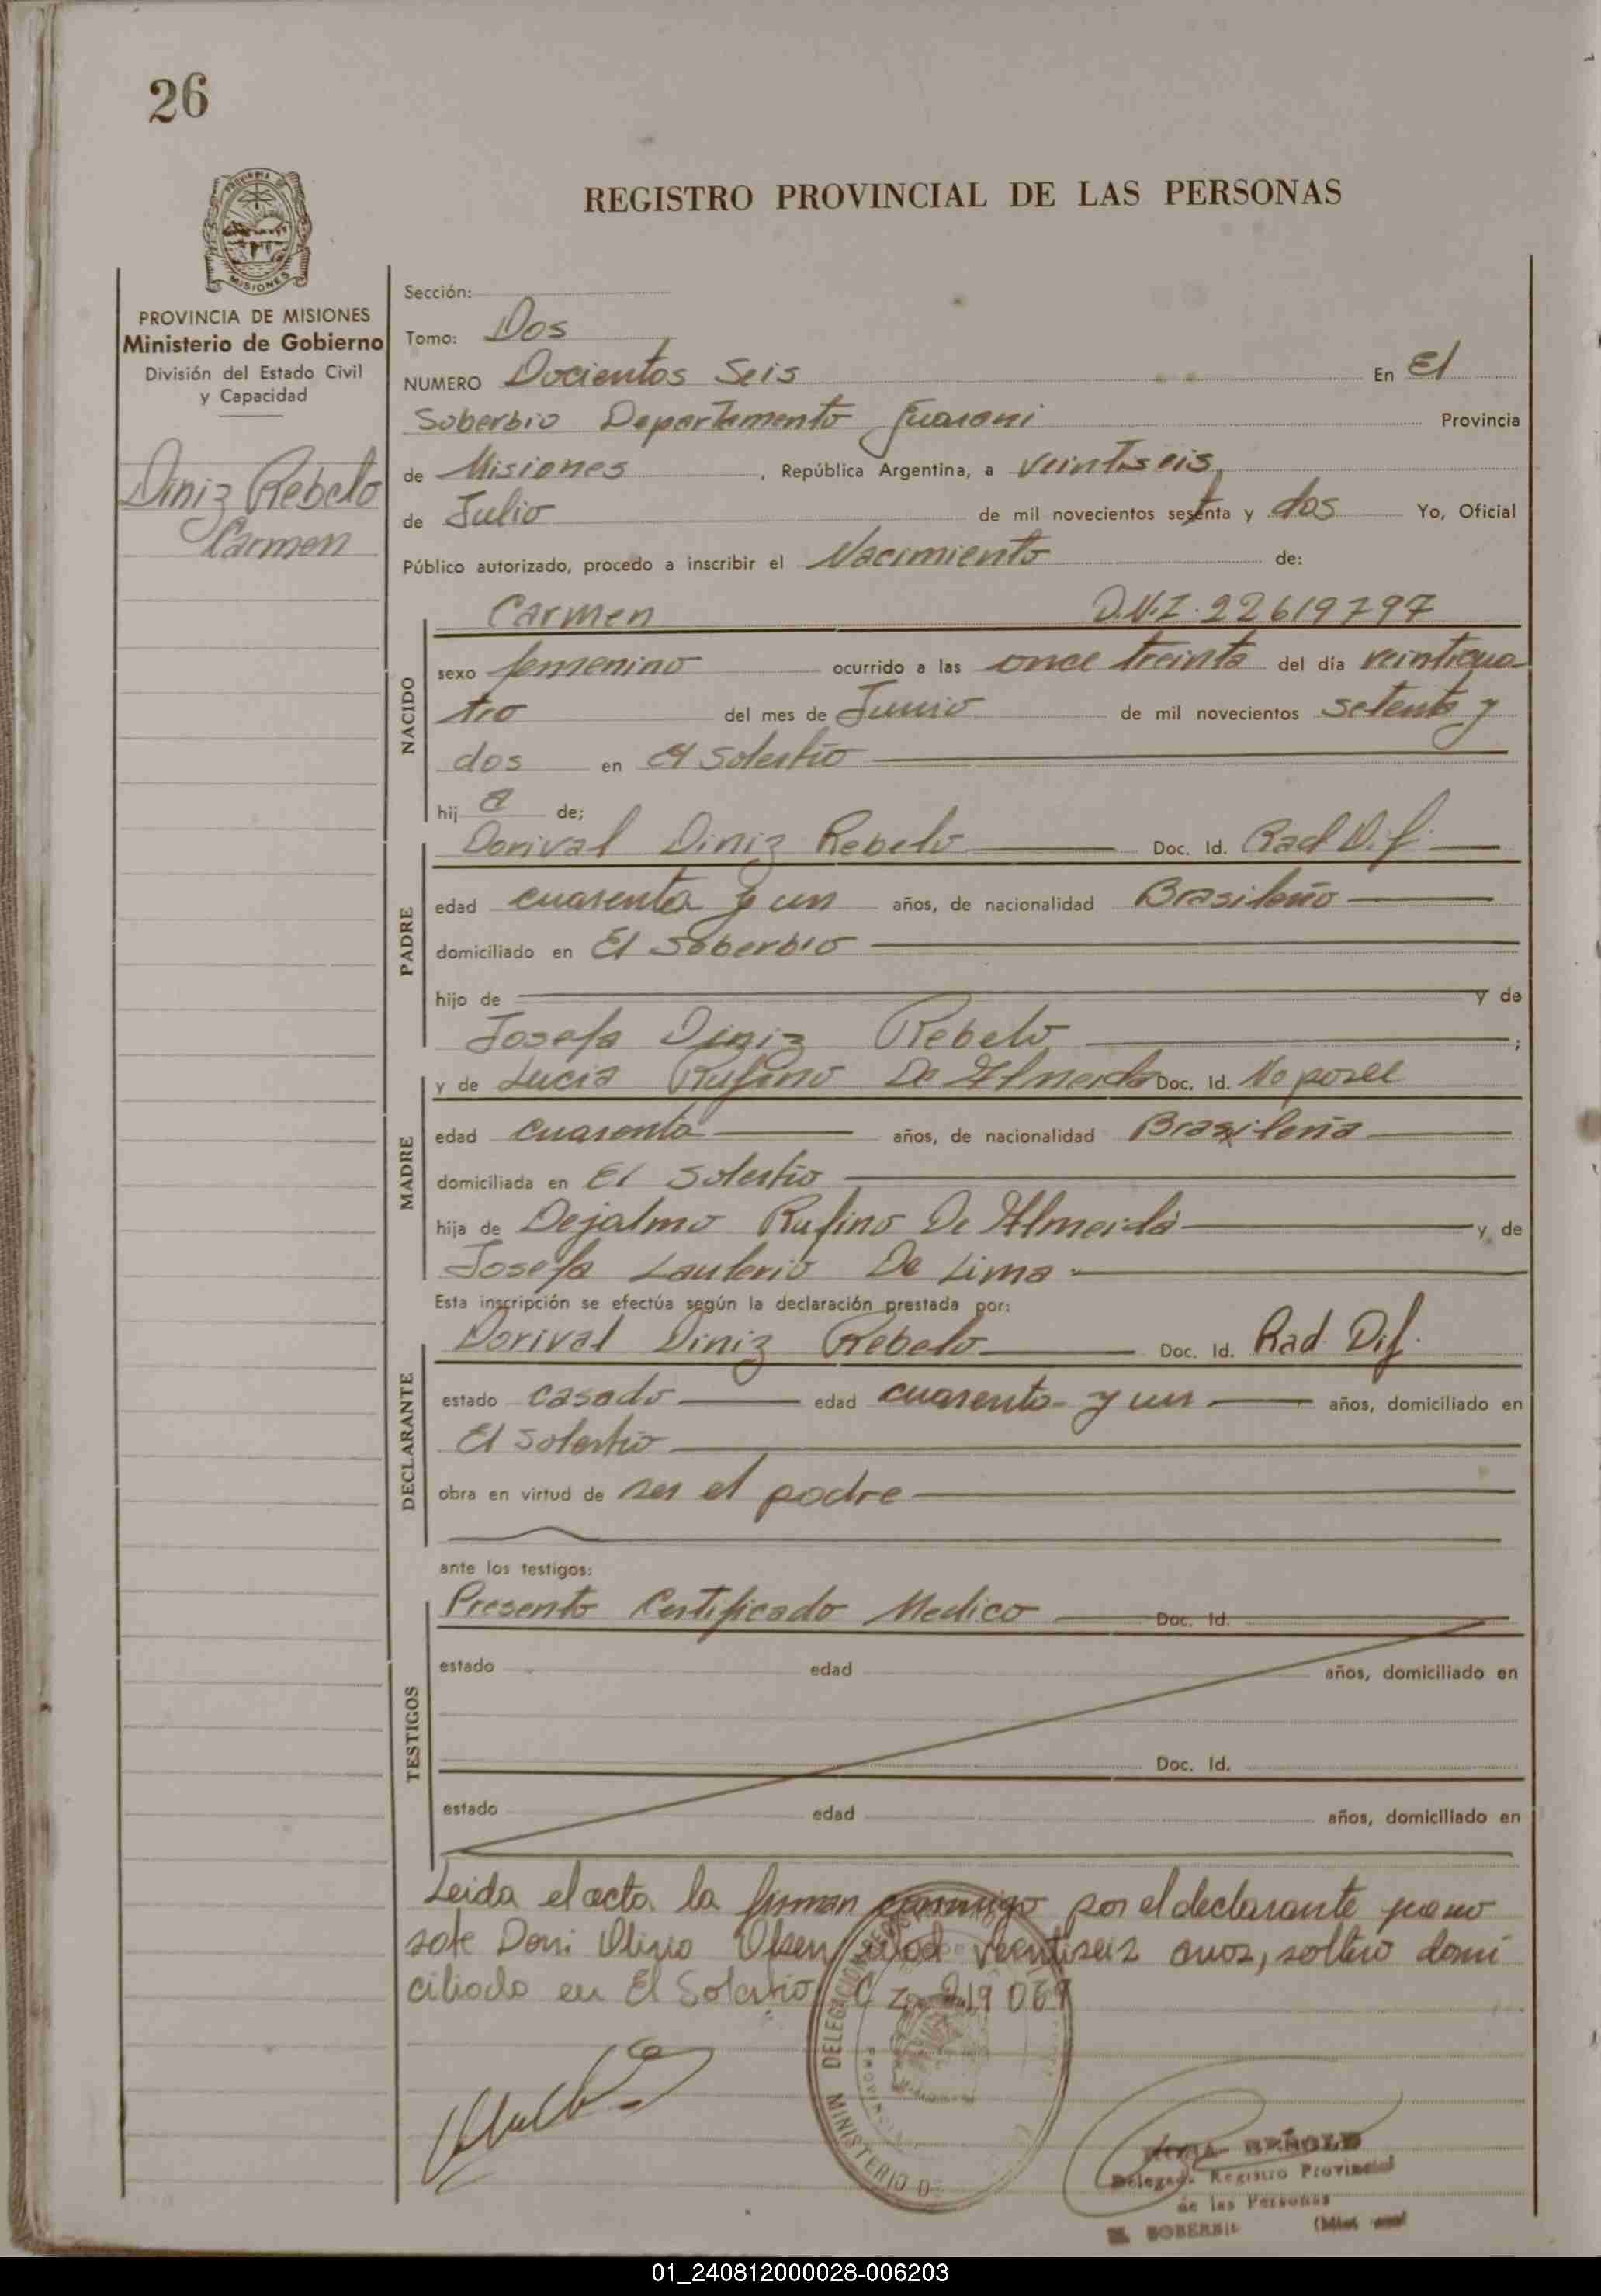 26
REGISTRO PROVINCIAL DE LAS PERSONAS
PROVINCIA DE MISIONES
Ministerio de Gobierno
División del Estado Civil
y Capacidad
Diniz Rebelo
Carmen
Sección:
Tomo: Dos
NUMERO Docientos Seis En El
Soberbio Departamento Guarani Provincia
de Misiones, República Argentina, a veintiseis,
de Julio de mil novecientos sesenta y dos Yo, Oficial
Público autorizado, procedo a inscribir el Nacimiento de:
NACIDO
Carmen D.N.I. 22619797
sexo femenino ocurrido a las once treinta del día veinticua
tro del mes de Junio de mil novecientos setenta y
dos en El Soberbio
hij a de;
PADRE
Dorival Diniz Rebelo Doc. Id. Rad Dif.
edad cuarenta y un años, de nacionalidad Brasileño
domiciliado en El Soberbio
hijo de y de
Josefa Diniz Rebelo ;
MADRE
y de Lucia Rufino De Almeida Doc. Id. No posee
edad cuarenta años, de nacionalidad Brasileña
domiciliada en El Soberbio
hija de Dejalmo Rufino De Almeida y de
Josefa Laulerio De Lima
Esta inscripción se efectúa según la declaración prestada por:
DECLARANTE
Dorival Diniz Rebelo Doc. Id. Rad. Dif.
estado casado edad cuarenta y un años, domiciliado en
El Soberbio
obra en virtud de ser el padre
ante los testigos:
TESTIGOS
Presento Certificado Medico Doc. Id.
estado edad años, domiciliado en
Doc. Id.
estado edad años, domiciliado en
Leida el acta la firman conmigo por el declarante que no
sabe Doni Olizio Olsen edad veintiseis anos, soltero domi
ciliado en El Soberbio
DELEGACION
PROVINCIA
MINISTERIO DE
Delegado Registro Provincial
de las Personas
EL SOBERBIO
01_240812000028-006203